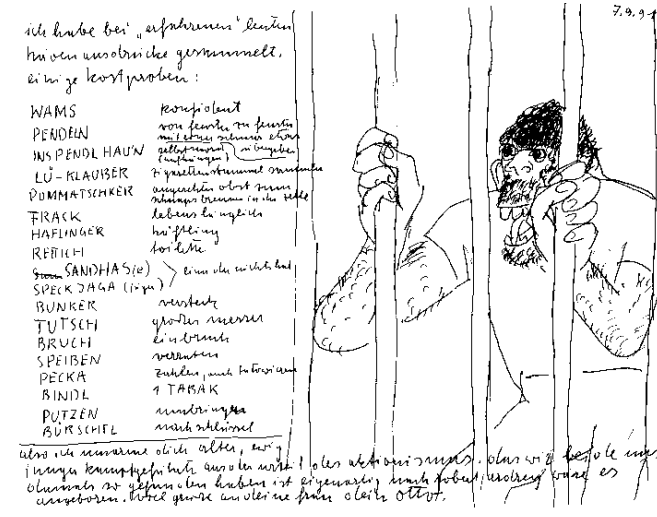 7.9.91
ich habe bei „erfahrenen" leuten
häfenausdrücke gesammelt.
einige kostproben:
WAMS konfident
PENDELN von fenster zu fenster mit einer schnur etwas
INSPENDLHAU'N selbstmord zu begehen (aufhängen)
LÜ-KLAUBER zigarettenstummel
POMMATSCHKER angesetztes obst zum schnaps brennen in der zelle
FRACK lebenslänglich
HAFLINGER häftling
RETTICH toilette
SANDHAS(e) einer der nichts hat
SPECKJAGA (jäger)
BUNKER versteck
TUTSCH großes messer
BRUCH einbruch
SPEIBEN verraten
PECKA zahlen, auch tätowieren
BINDL 1 TABAK
PUTZEN umbringen
BÜRSCHEL nachschlüssel
also ich umarme dich alter, ewig
junger kampfgefährte aus den des aktionismus. das wir beide uns
damals so gefunden haben ist eigenartig
angeboren. viel grüsse an deine frau dein otto.